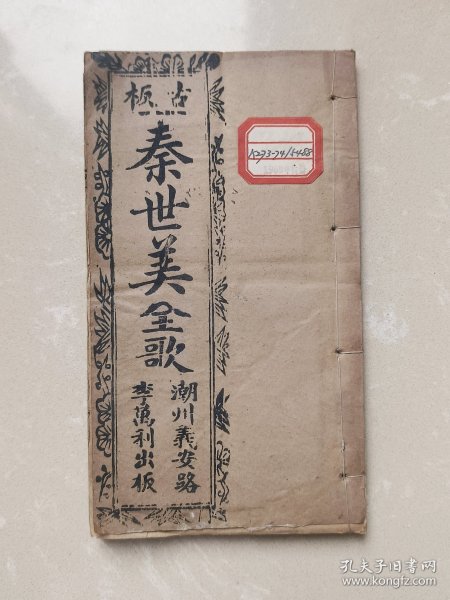 古板
秦世美全歌
潮州義安路
李萬利出板
15273-74/5488
孔夫子旧书网
www.kongfz.com